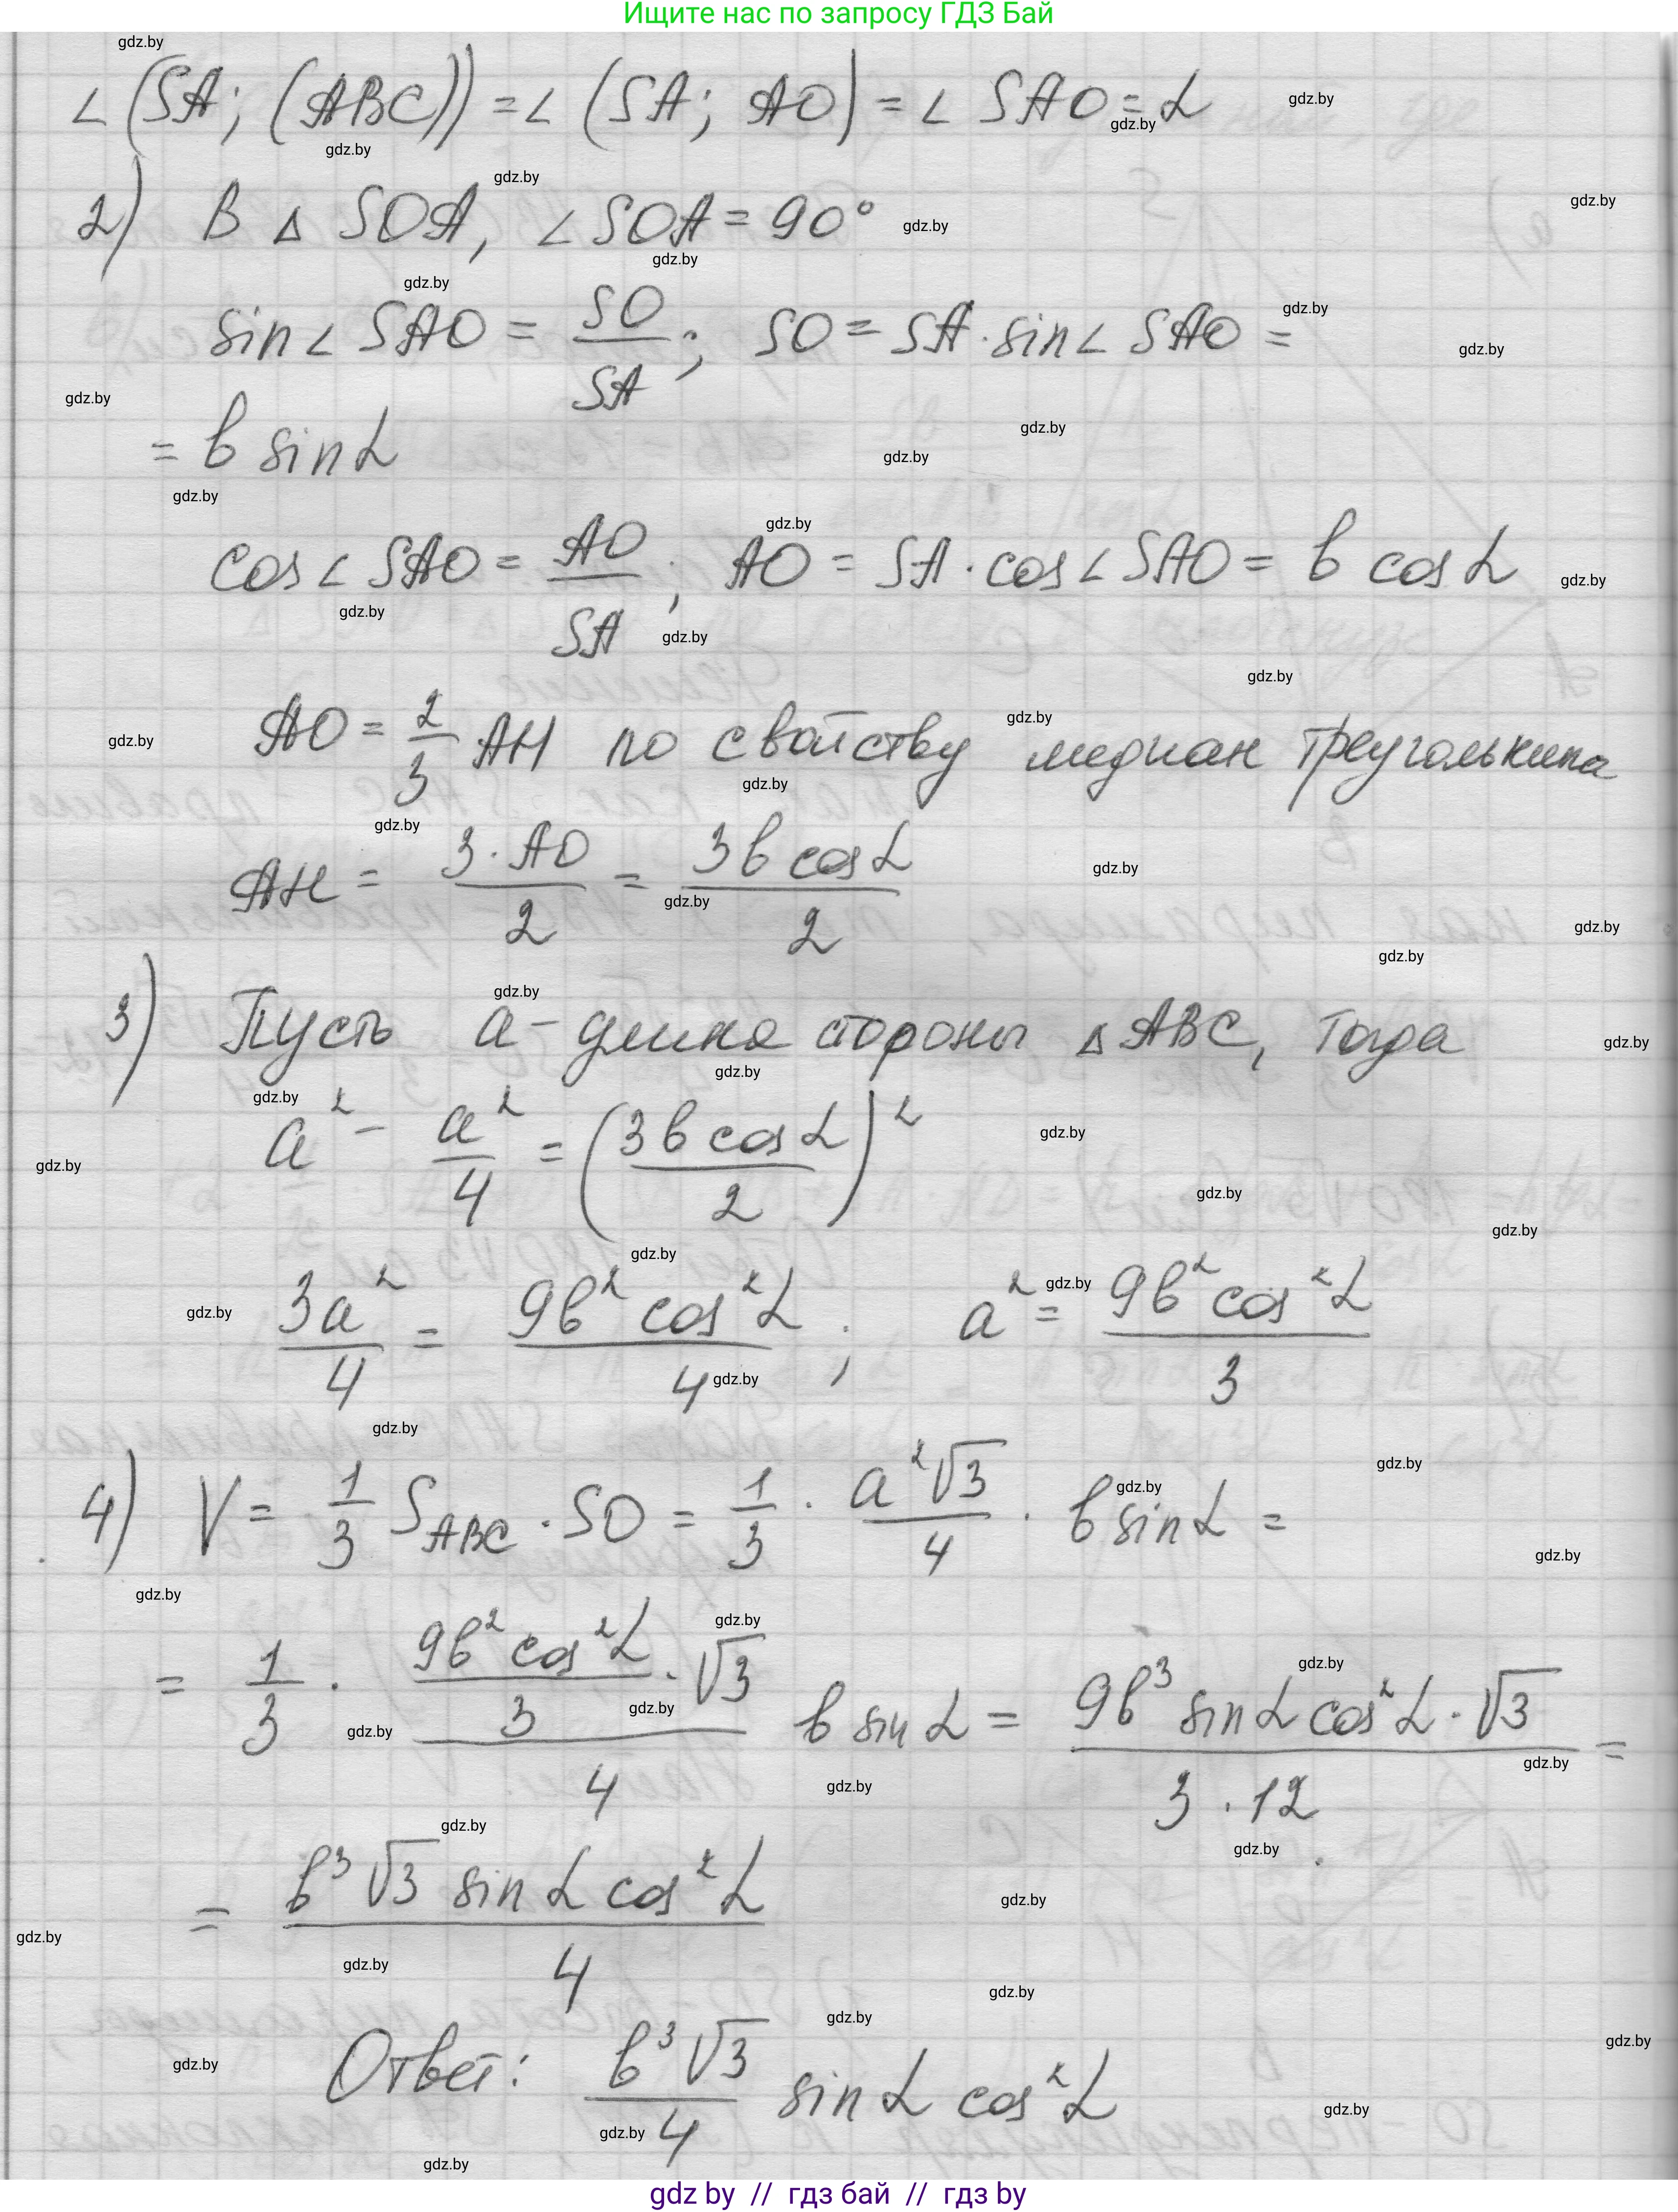 Ищите нас по запросу ГДЗ Бай
∠(SA; (ABC)) = ∠(SA; AO) = ∠SAO = α
2) В △ SOA, ∠SOA = 90°
sin∠SAO = SO/SA; SO = SA · sin∠SAO =
= b sinα
cos∠SAO = AO/SA; AO = SA · cos∠SAO = b cosα
AO = 2/3 AH по свойству медиан треугольника
AH = 3·AO/2 = 3b cosα/2
3) Пусть a - длина стороны △ABC, тогда
a² - a²/4 = (3b cosα/2)²
3a²/4 = 9b² cos²α/4; a² = 9b² cos²α/3
4) V = 1/3 S_ABC · SO = 1/3 · a²√3/4 · b sinα =
= 1/3 · (9b² cos²α/3 · √3)/4 b sinα = 9b³ sinα cos²α · √3/(3 · 12) =
= b³√3 sinα cos²α/4
Ответ: b³√3/4 sinα cos²α
gdz by // гдз бай // гдз by